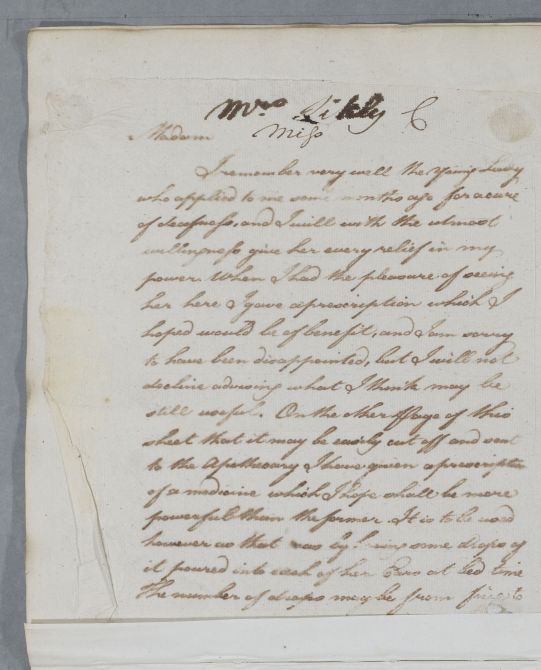 Mrs. Likly C
Miss
Madam
I remember very well the Young Lady
who applied to me some months ago for a cure
of deafness, and I will with the utmost
willingness give her every relief in my
power. When I had the pleasure of seeing
her here I gave a prescription which I
hoped would be of benefit, and I am sorry
to have been disappointed, but I will not
decline advising what I think may be
still useful. On the other Page of this
sheet that it may be easily cut off and sent
to the Apothecary I have given a prescription
of a medicine which I hope shall be more
powerful than the former. It is to be used
however as that was by having some drops of
it poured into each of her Ears at bed time
The number of drops may be from five to